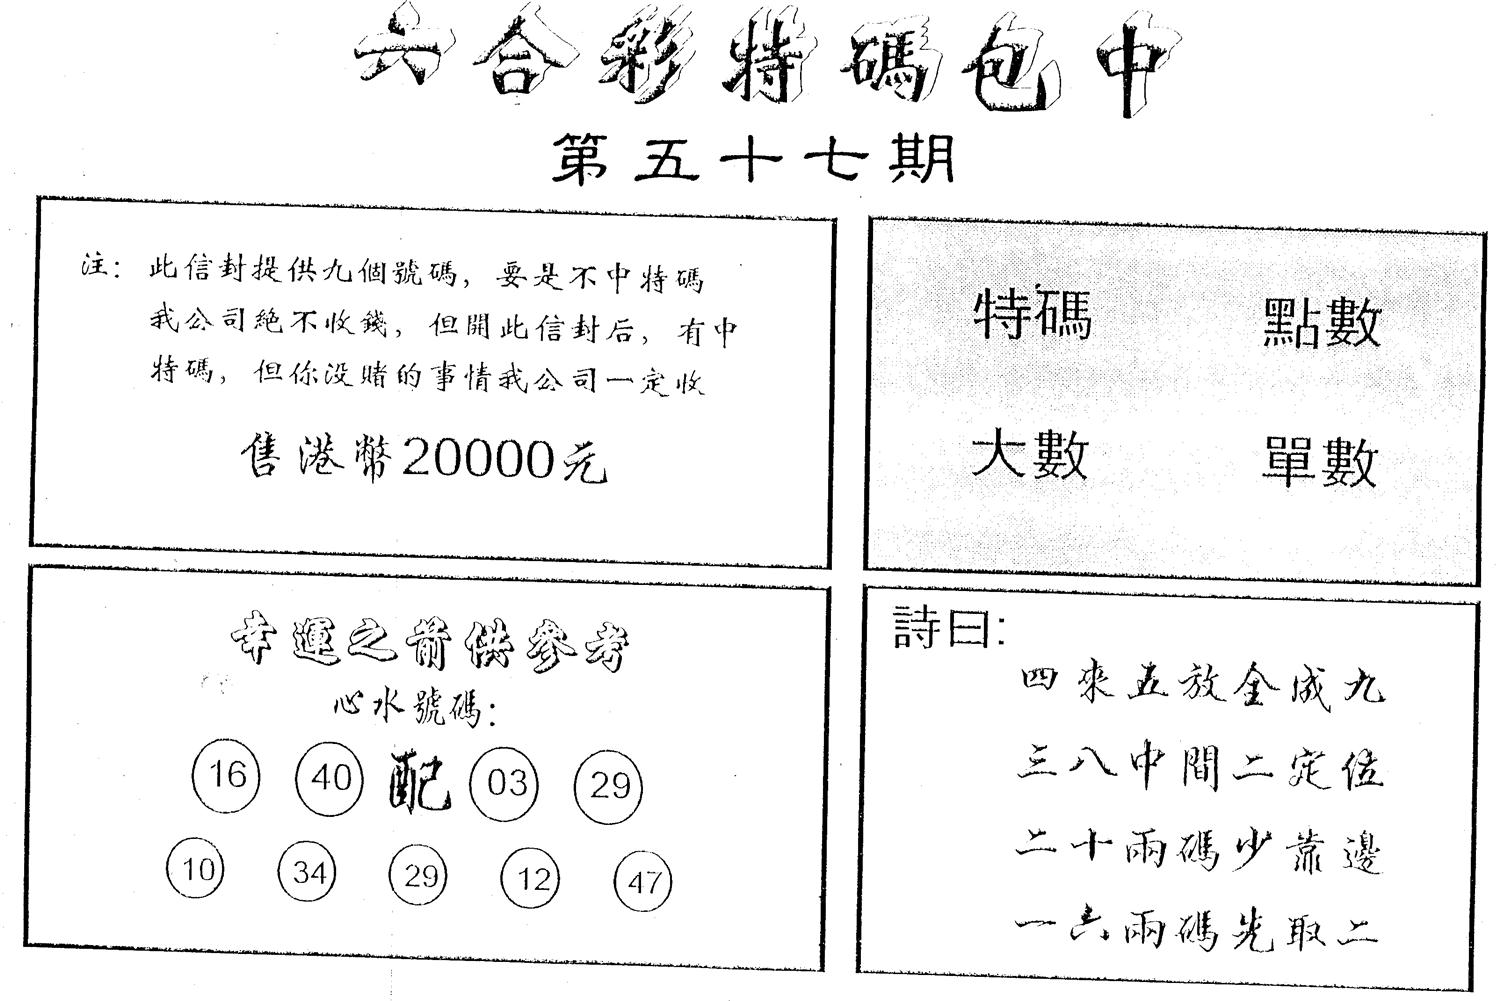 六合彩特碼包中
第五十七期
注：此信封提供九個號碼，要是不中特碼
我公司絕不收錢，但開此信封后，有中
特碼，但你没賭的事情我公司一定收
售港幣20000元
特碼 點數
大數 單數
幸運之箭供參考
心水號碼：
16 40 配 03 29
10 34 29 12 47
詩曰：
四來五放全成九
三八中間二定位
二十兩碼少靠邊
一六兩碼先取二